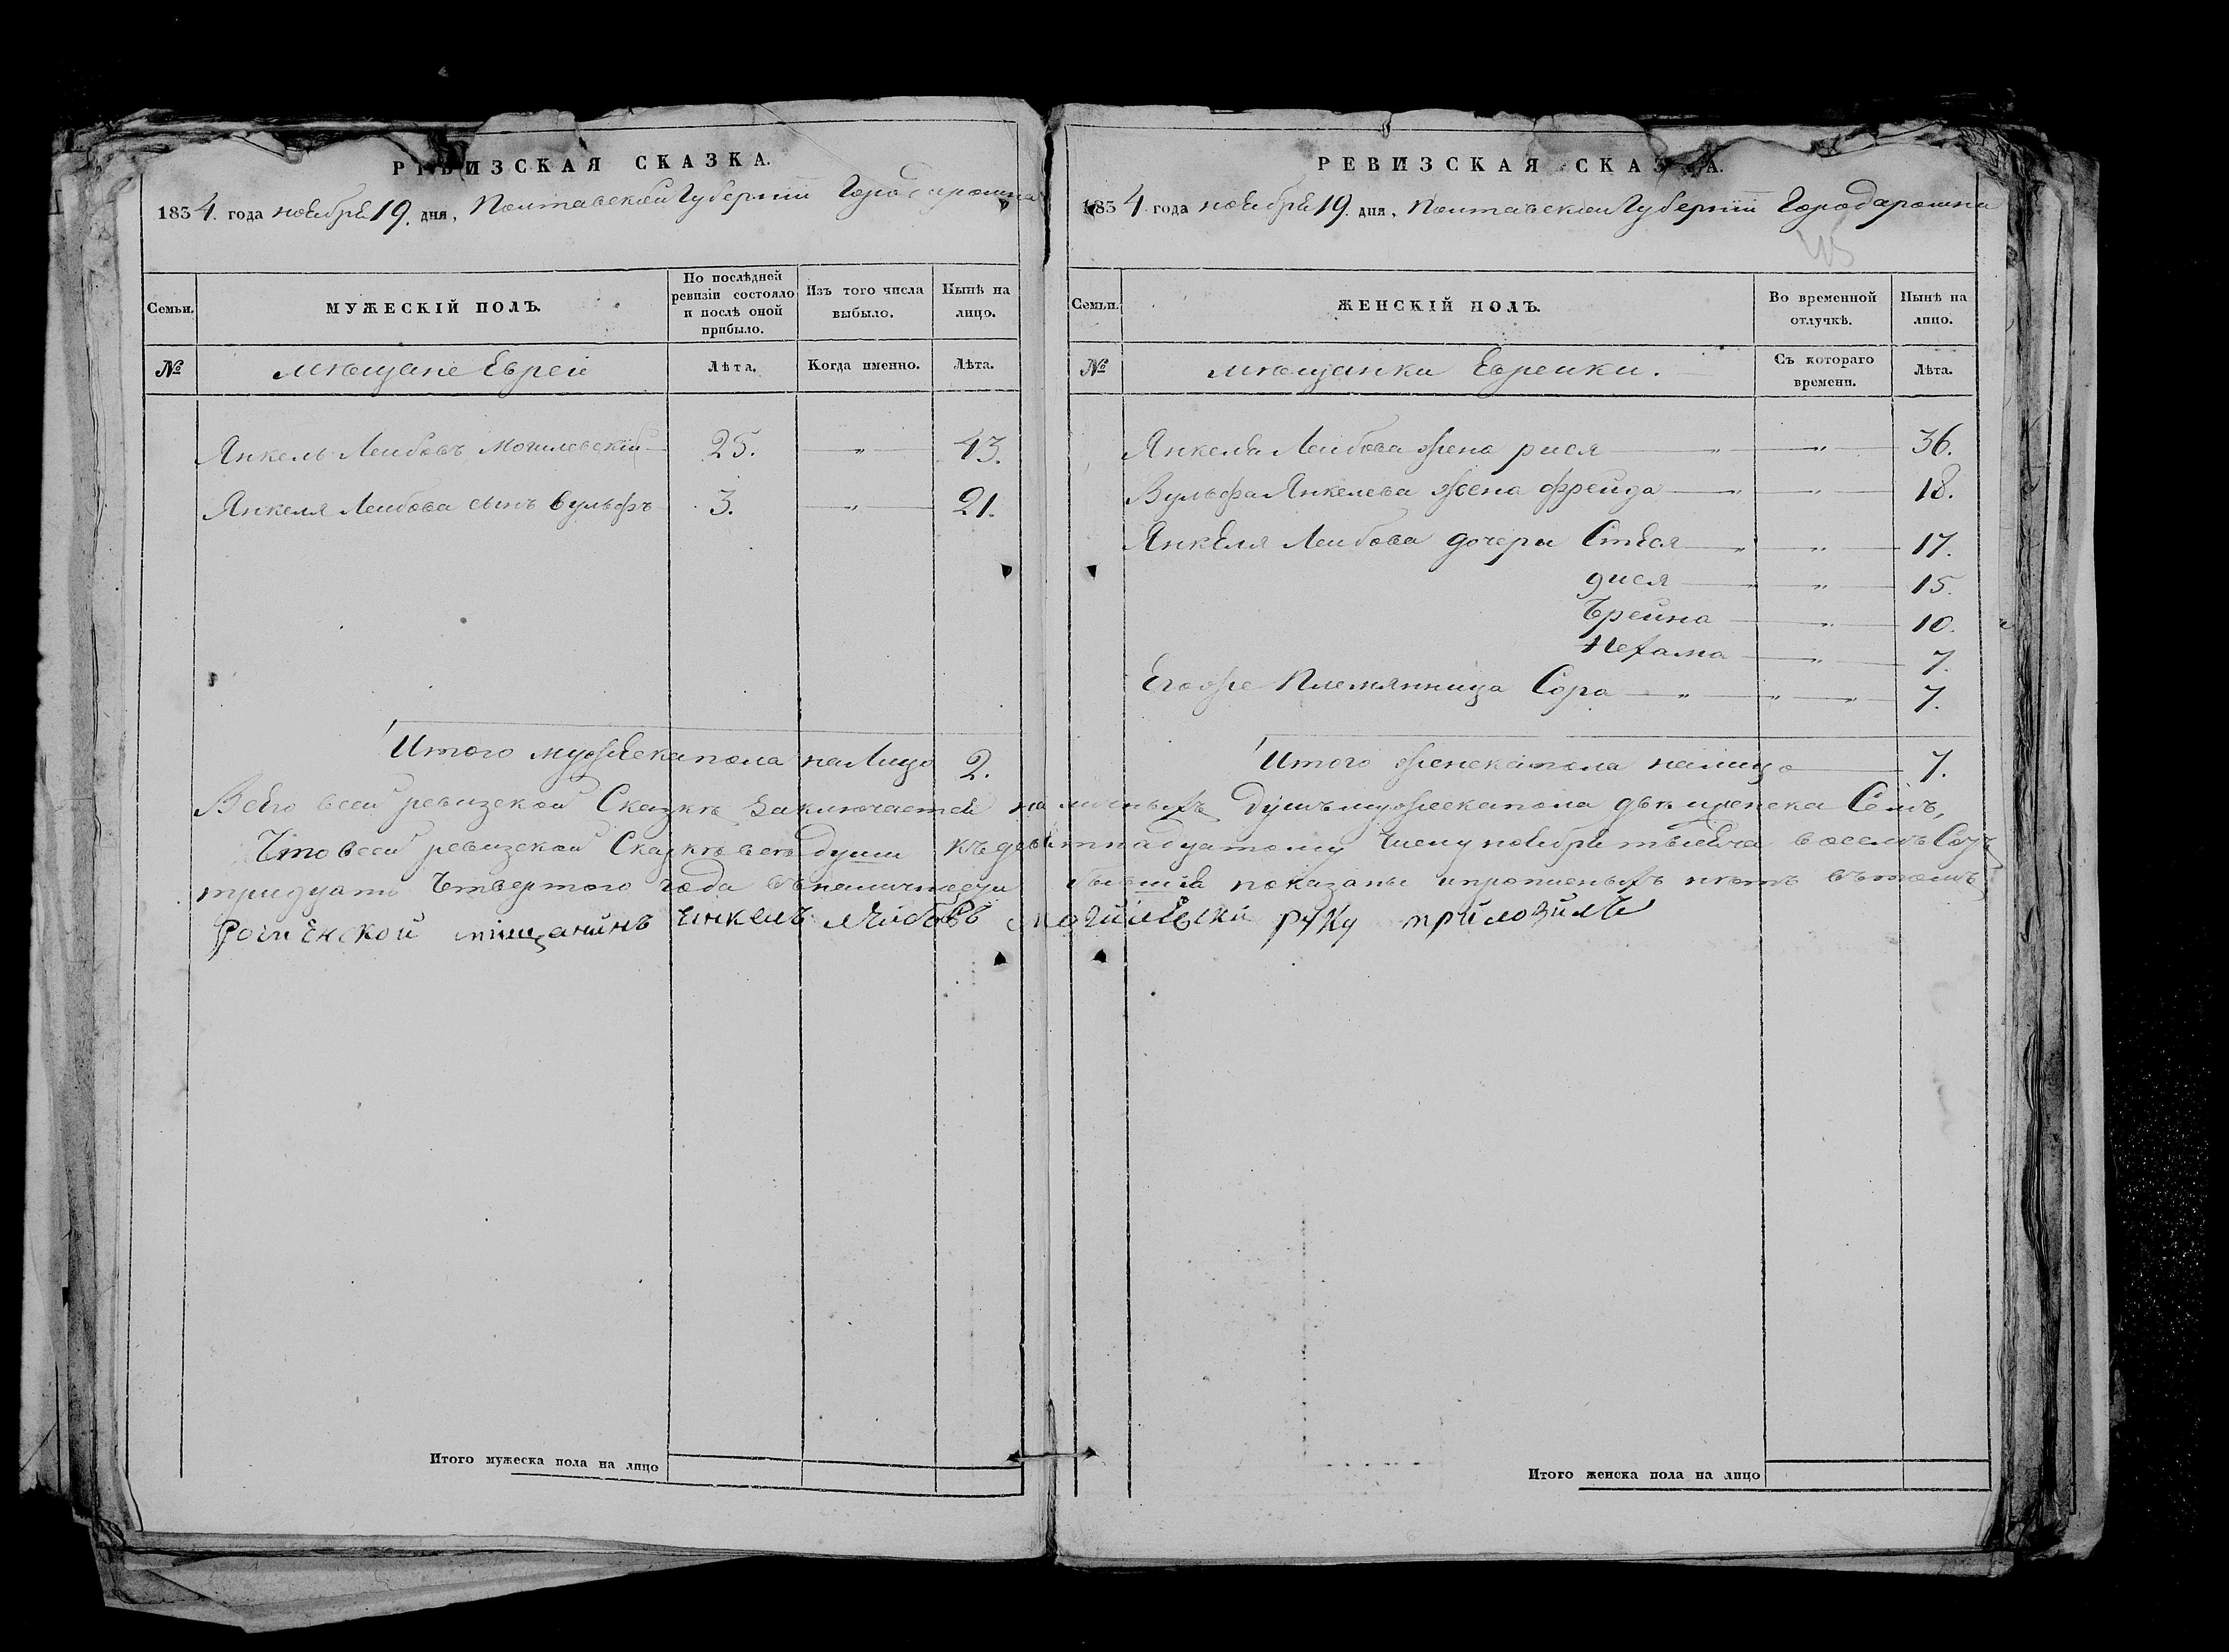 РЕВИЗСКАЯ СКАЗКА.
1834. года ноября 19. дня, Полтавской Губернии Города
МУЖЕСКІЙ ПОЛЪ.
Семьи.
По послѣдней ревизіи состояло и послѣ оной прибыло.
Изъ того числа выбыло.
Нынѣ на лицо.
№
мѣщане Евреи
Лѣта.
Когда именно.
Лѣта.
Янкель Лейбовъ Могилевскій 25. — „ — 43.
Янкеля Лейбова сынъ Вульфъ 3. — „ — 21.
Итого мужеска пола на Лицо 2.
РЕВИЗСКАЯ СКАЗКА.
1834 года ноября 19. дня, Полтавской Губернии Города
Семьи.
ЖЕНСКІЙ ПОЛЪ.
Во временной отлучкѣ.
Нынѣ на лицо.
№
мѣщанки Еврейки.
Съ котораго времени.
Лѣта.
Янкеля Лейбова жена рися — „ — „ — 36.
Вульфа Янкелева жена фрейда — „ — „ — 18.
Янкеля Лейбова дочери Стеся — „ — „ — 17.
дися — „ — „ — 15.
Брейна — „ — 10.
Нехама — „ — 7.
Егоже Племянница Сора — „ — „ — „ — 7.
Итого женска пола налицо 7.
Всего всей ревизской Сказкѣ Заключается наличныхъ душъ мужеска пола двѣ и женска Семь,
Что всей ревизской Сказкѣ всѣ души къ девятнадцатому числу ноября тысяча восемь Сотъ
тридцать Четвертого года въ наличности бывшія показаны и прописныхъ нѣтъ въ томъ
мѣщанинъ Янкель Лейбовъ Могилевски руку приложилъ
Итого мужеска пола на лицо
Итого женска пола на лицо